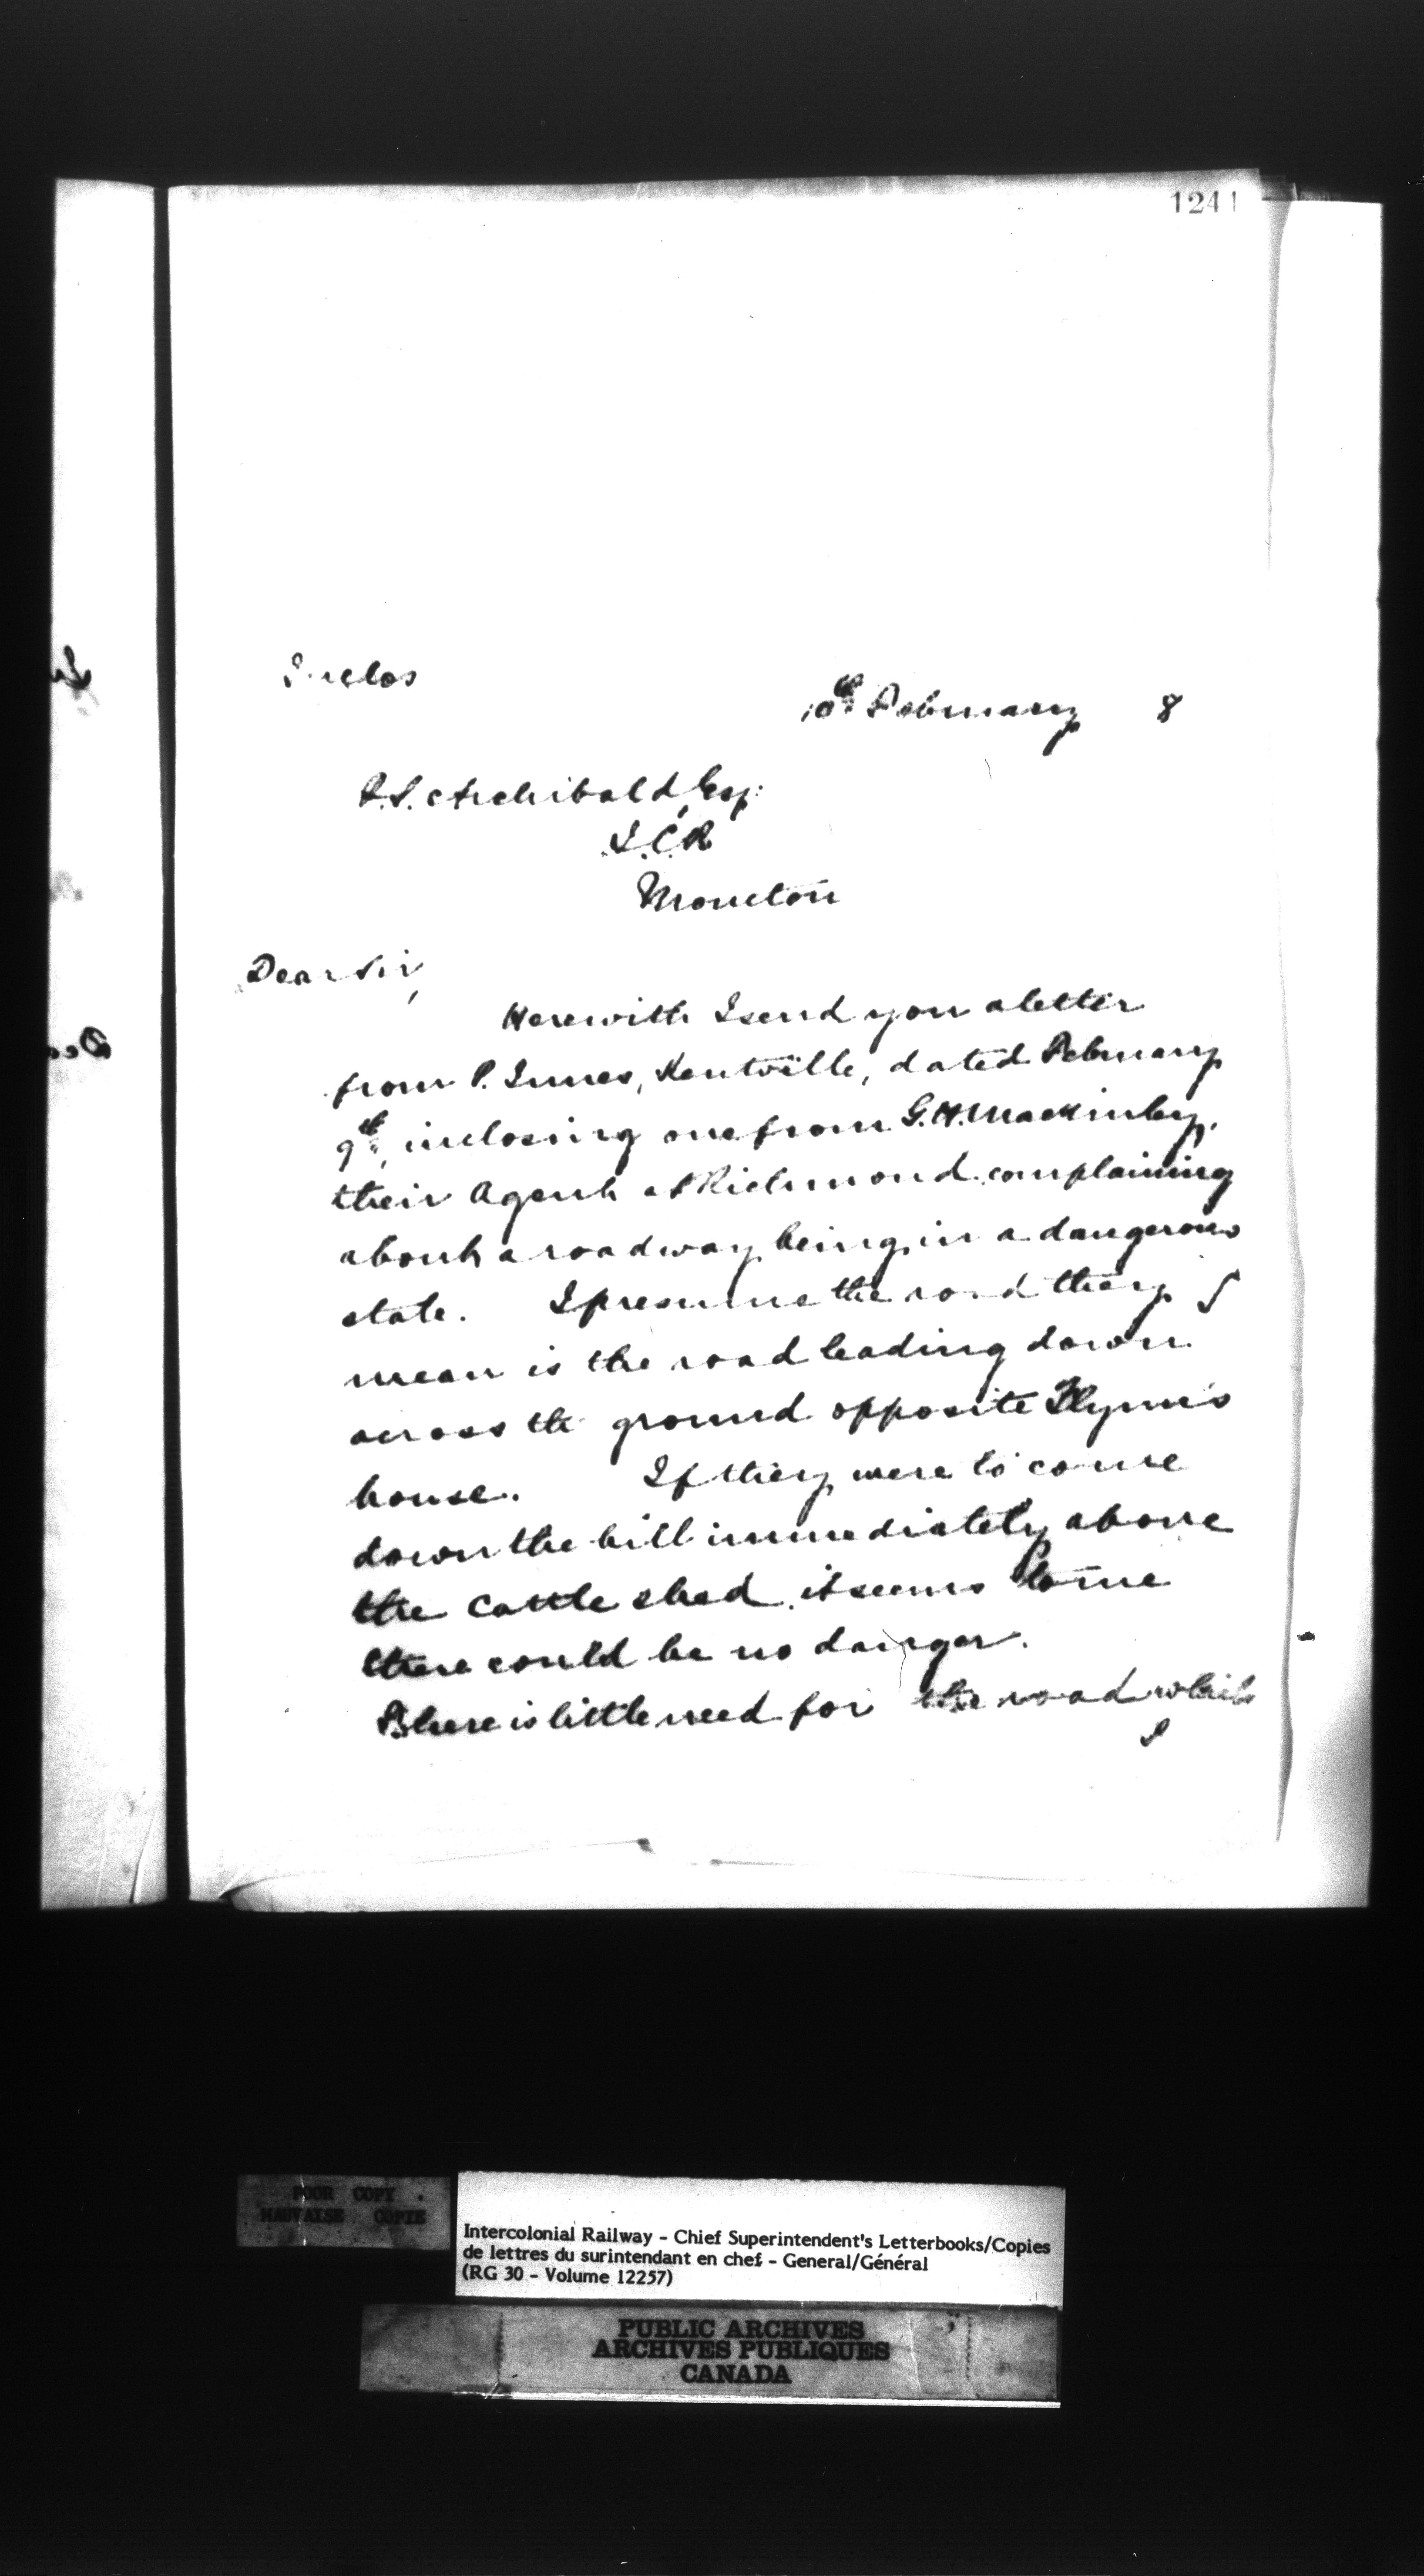 1241
Inclos
10th February 8
P.S. Archibald, Esq:
I.C.R
Moncton
Dear Sir,
Herewith I send you a letter
from P. Innes, Kentville, dated February
9th, inclosing one from G.H. Mackinley,
their Agent at Richmond complaining
about a roadway being in a dangerous
state. I presume the road they
mean is the road leading down
across the ground opposite Flynn's
house. If they were to come
down the hill immediately above
the cattle shed, it seems to me
there could be no danger.
There is little need for the road which
POOR COPY.
MAUVAISE COPIE
Intercolonial Railway - Chief Superintendent's Letterbooks/Copies
de lettres du surintendant en chef - General/Général
(RG 30 - Volume 12257)
PUBLIC ARCHIVES
ARCHIVES PUBLIQUES
CANADA